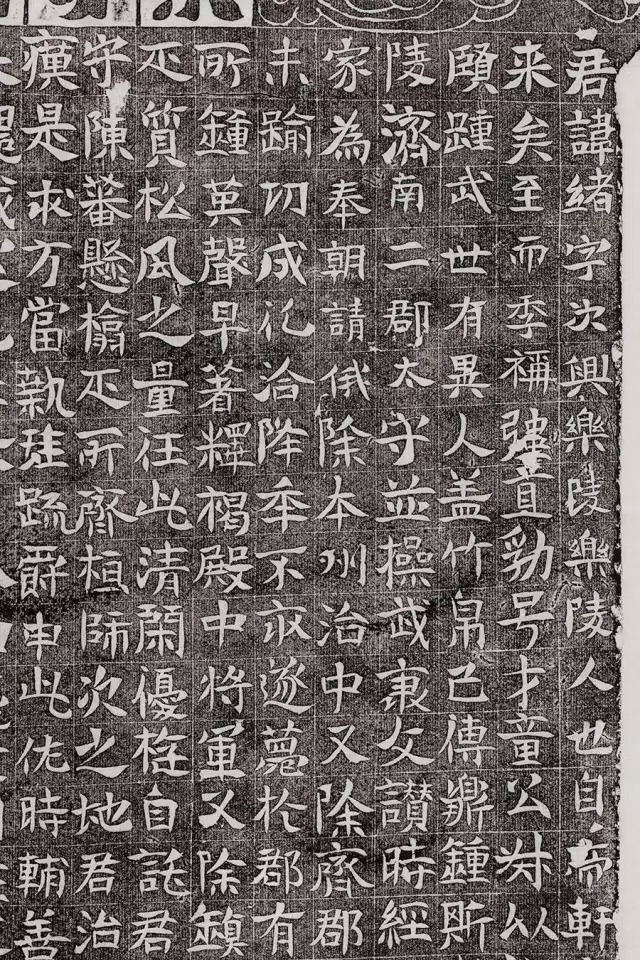 君諱緒字次興樂陵樂陵人也自帝軒
来矣至而季禰強直勁号才童公以
頤踵武世有異人盖竹帛已傳鼎鍾斯
陵濟南二郡太守並操武兼文讃時經
家為奉朝請俄除本州治中又除齊郡
未踰切成化洽降年不永遂薨於郡有
所鍾英聲早著釋褐殿中將軍又除鎮
丕質松風之量汪此清閑優遊自託君
守陳蕃懸榻丕所齊桓師次之地君治
瘼是求方當執珪疏爵申此佐時輔善